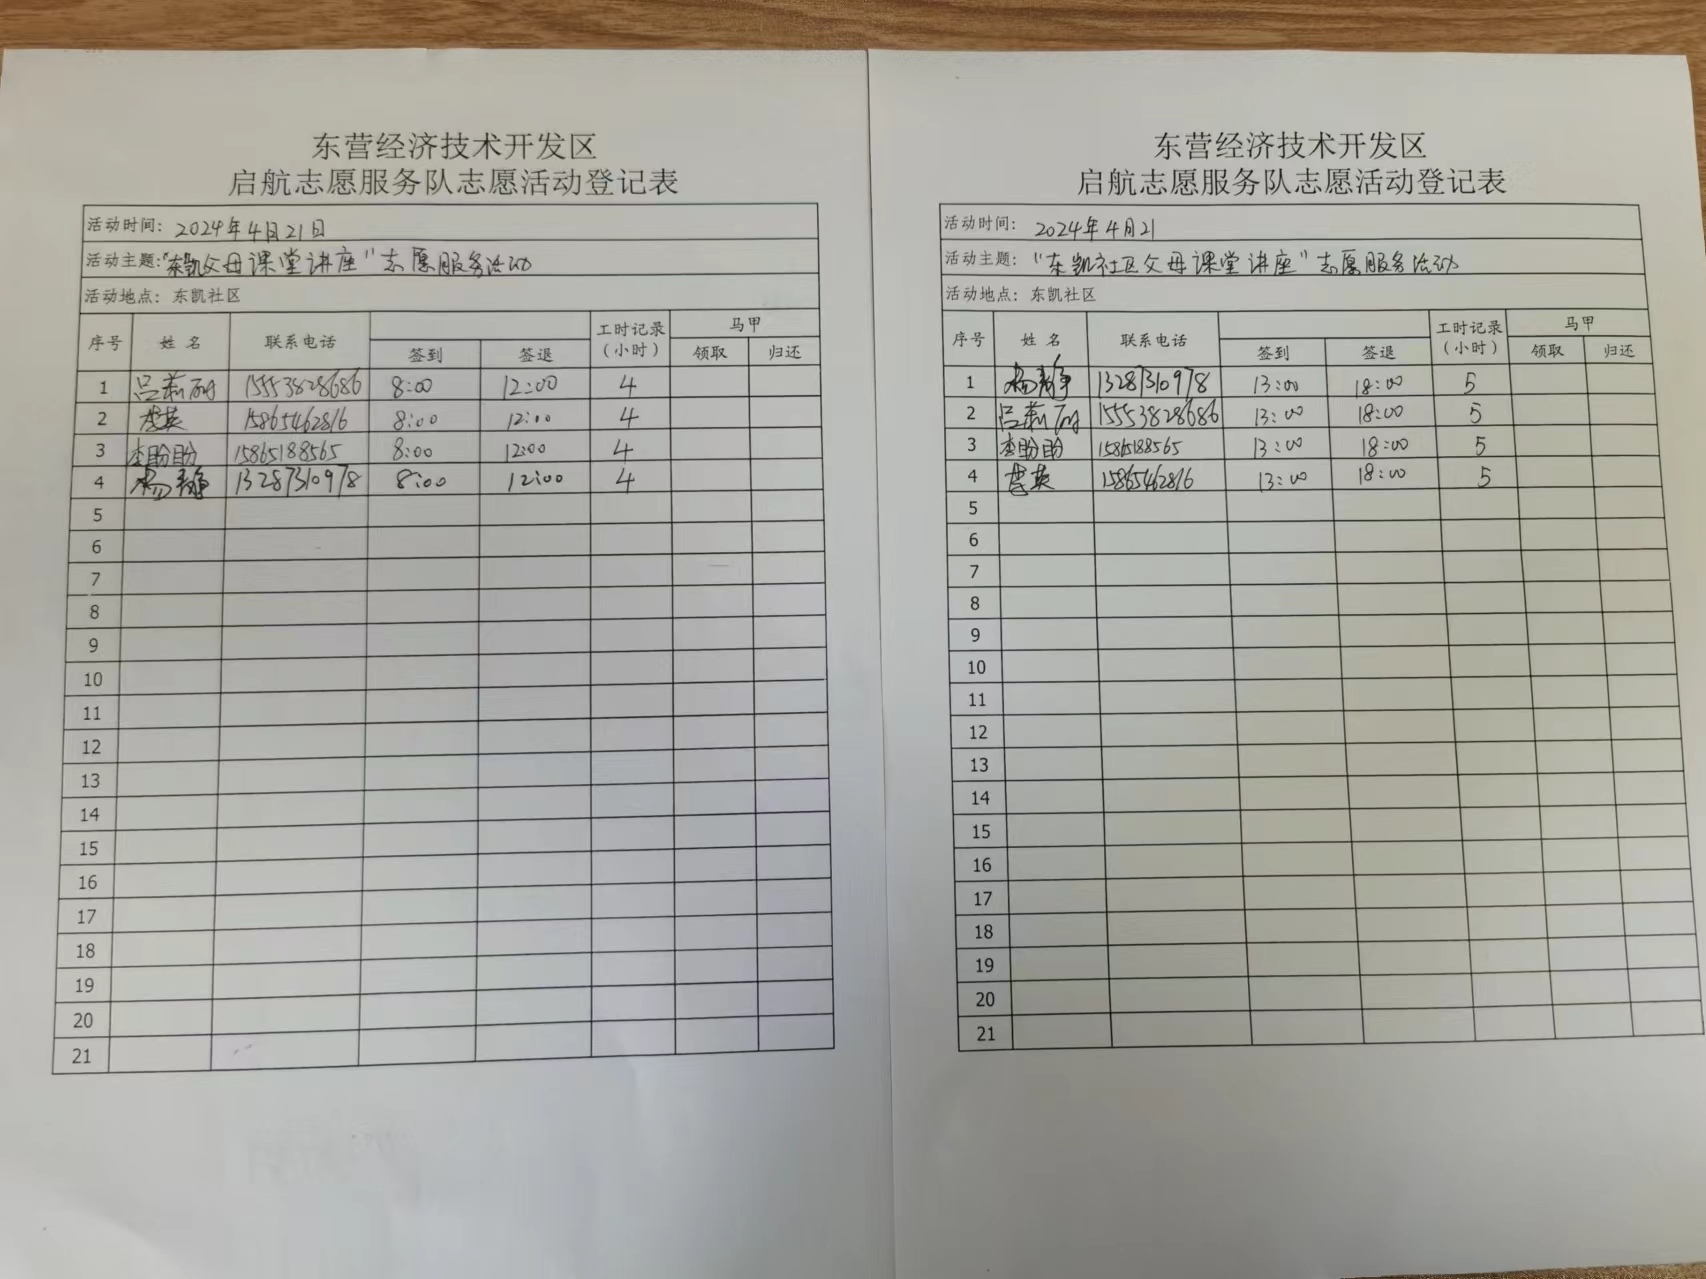 东营经济技术开发区
启航志愿服务队志愿活动登记表
活动时间: 2024年4月21日
活动主题:"东凯父母课堂讲座"志愿服务活动
活动地点: 东凯社区
序号 姓 名 联系电话 签到 签退 工时记录(小时) 马甲 领取 归还
1 吕莉 15553828686 8:00 12:00 4
2 李英 15865462816 8:00 12:00 4
3 李盼盼 15865188565 8:00 12:00 4
4 杨静 13287310978 8:00 12:00 4
5
6
7
8
9
10
11
12
13
14
15
16
17
18
19
20
21
东营经济技术开发区
启航志愿服务队志愿活动登记表
活动时间: 2024年4月21
活动主题: "东凯社区父母课堂讲座"志愿服务活动
活动地点: 东凯社区
序号 姓 名 联系电话 签到 签退 工时记录(小时) 马甲 领取 归还
1 杨静 13287310978 13:00 18:00 5
2 吕莉 15553828686 13:00 18:00 5
3 李盼盼 15865188565 13:00 18:00 5
4 李英 15865462816 13:00 18:00 5
5
6
7
8
9
10
11
12
13
14
15
16
17
18
19
20
21